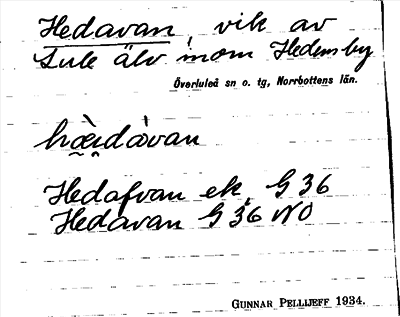 Hedavan, vik av
Lule älv inom Hedens by
Överluleå sn o. tg, Norrbottens län.
hæ̀i̯dàvan
Hedafvan ek. G 36
Hedavan G 36 NO
GUNNAR PELLIJEFF 1934.